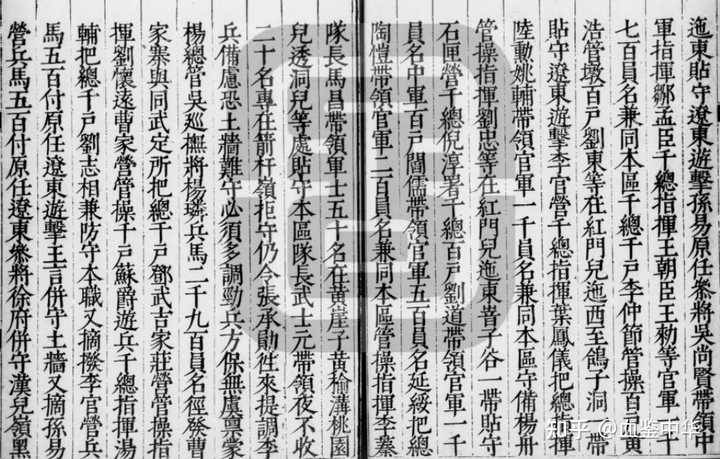 迤東貼守遼東遊擊孫易原任叅將吳尚賢帶領中
軍指揮鄒孟臣千總指揮王朝臣王勑等官軍一千
七百員名兼同本區千總千戶李仲節管操百戶黃
浩管墩百戶劉東等在紅門兒迤西至鴿子洞一帶
貼守遼東遊擊李官營千總指揮葉鳳儀把總指揮
陸勳姚輔帶領官軍一千員名兼同本區守備楊舟
管操指揮劉忠等在紅門兒迤東菅子谷一帶貼守
石匣營千總倪淳署千總百戶劉道帶領官軍一千
員名中軍百戶閻儒帶領官軍五百員名延綏把總
陶愷帶領官軍二百員名兼同本區管操指揮李蓁
隊長馬昌帶領軍士五十名在黃崖子黃榆溝桃園
兒透洞兒等處貼守本區隊長武士元帶領夜不收
二十名專在箭杆領拒守仍令張承勛徃來提調李
兵備慮恐土牆難守必須多調勁兵方保無虞禀家
楊總管吳巡撫將楊璘兵馬二千九百員名徑發曹
家寨與同武定所把總千戶鄧武吉家莊營管操指
揮劉懷遂曹家營管操千戶蘇爵遊兵千總指揮湯
輔把總千戶劉志相兼防守本職又摘撥李官營兵
馬五百付原任遼東遊擊王言併守土牆又摘孫易
營兵馬五百付原任遼東叅將徐府併守漢兒嶺黑
知乎 @血鉴中华